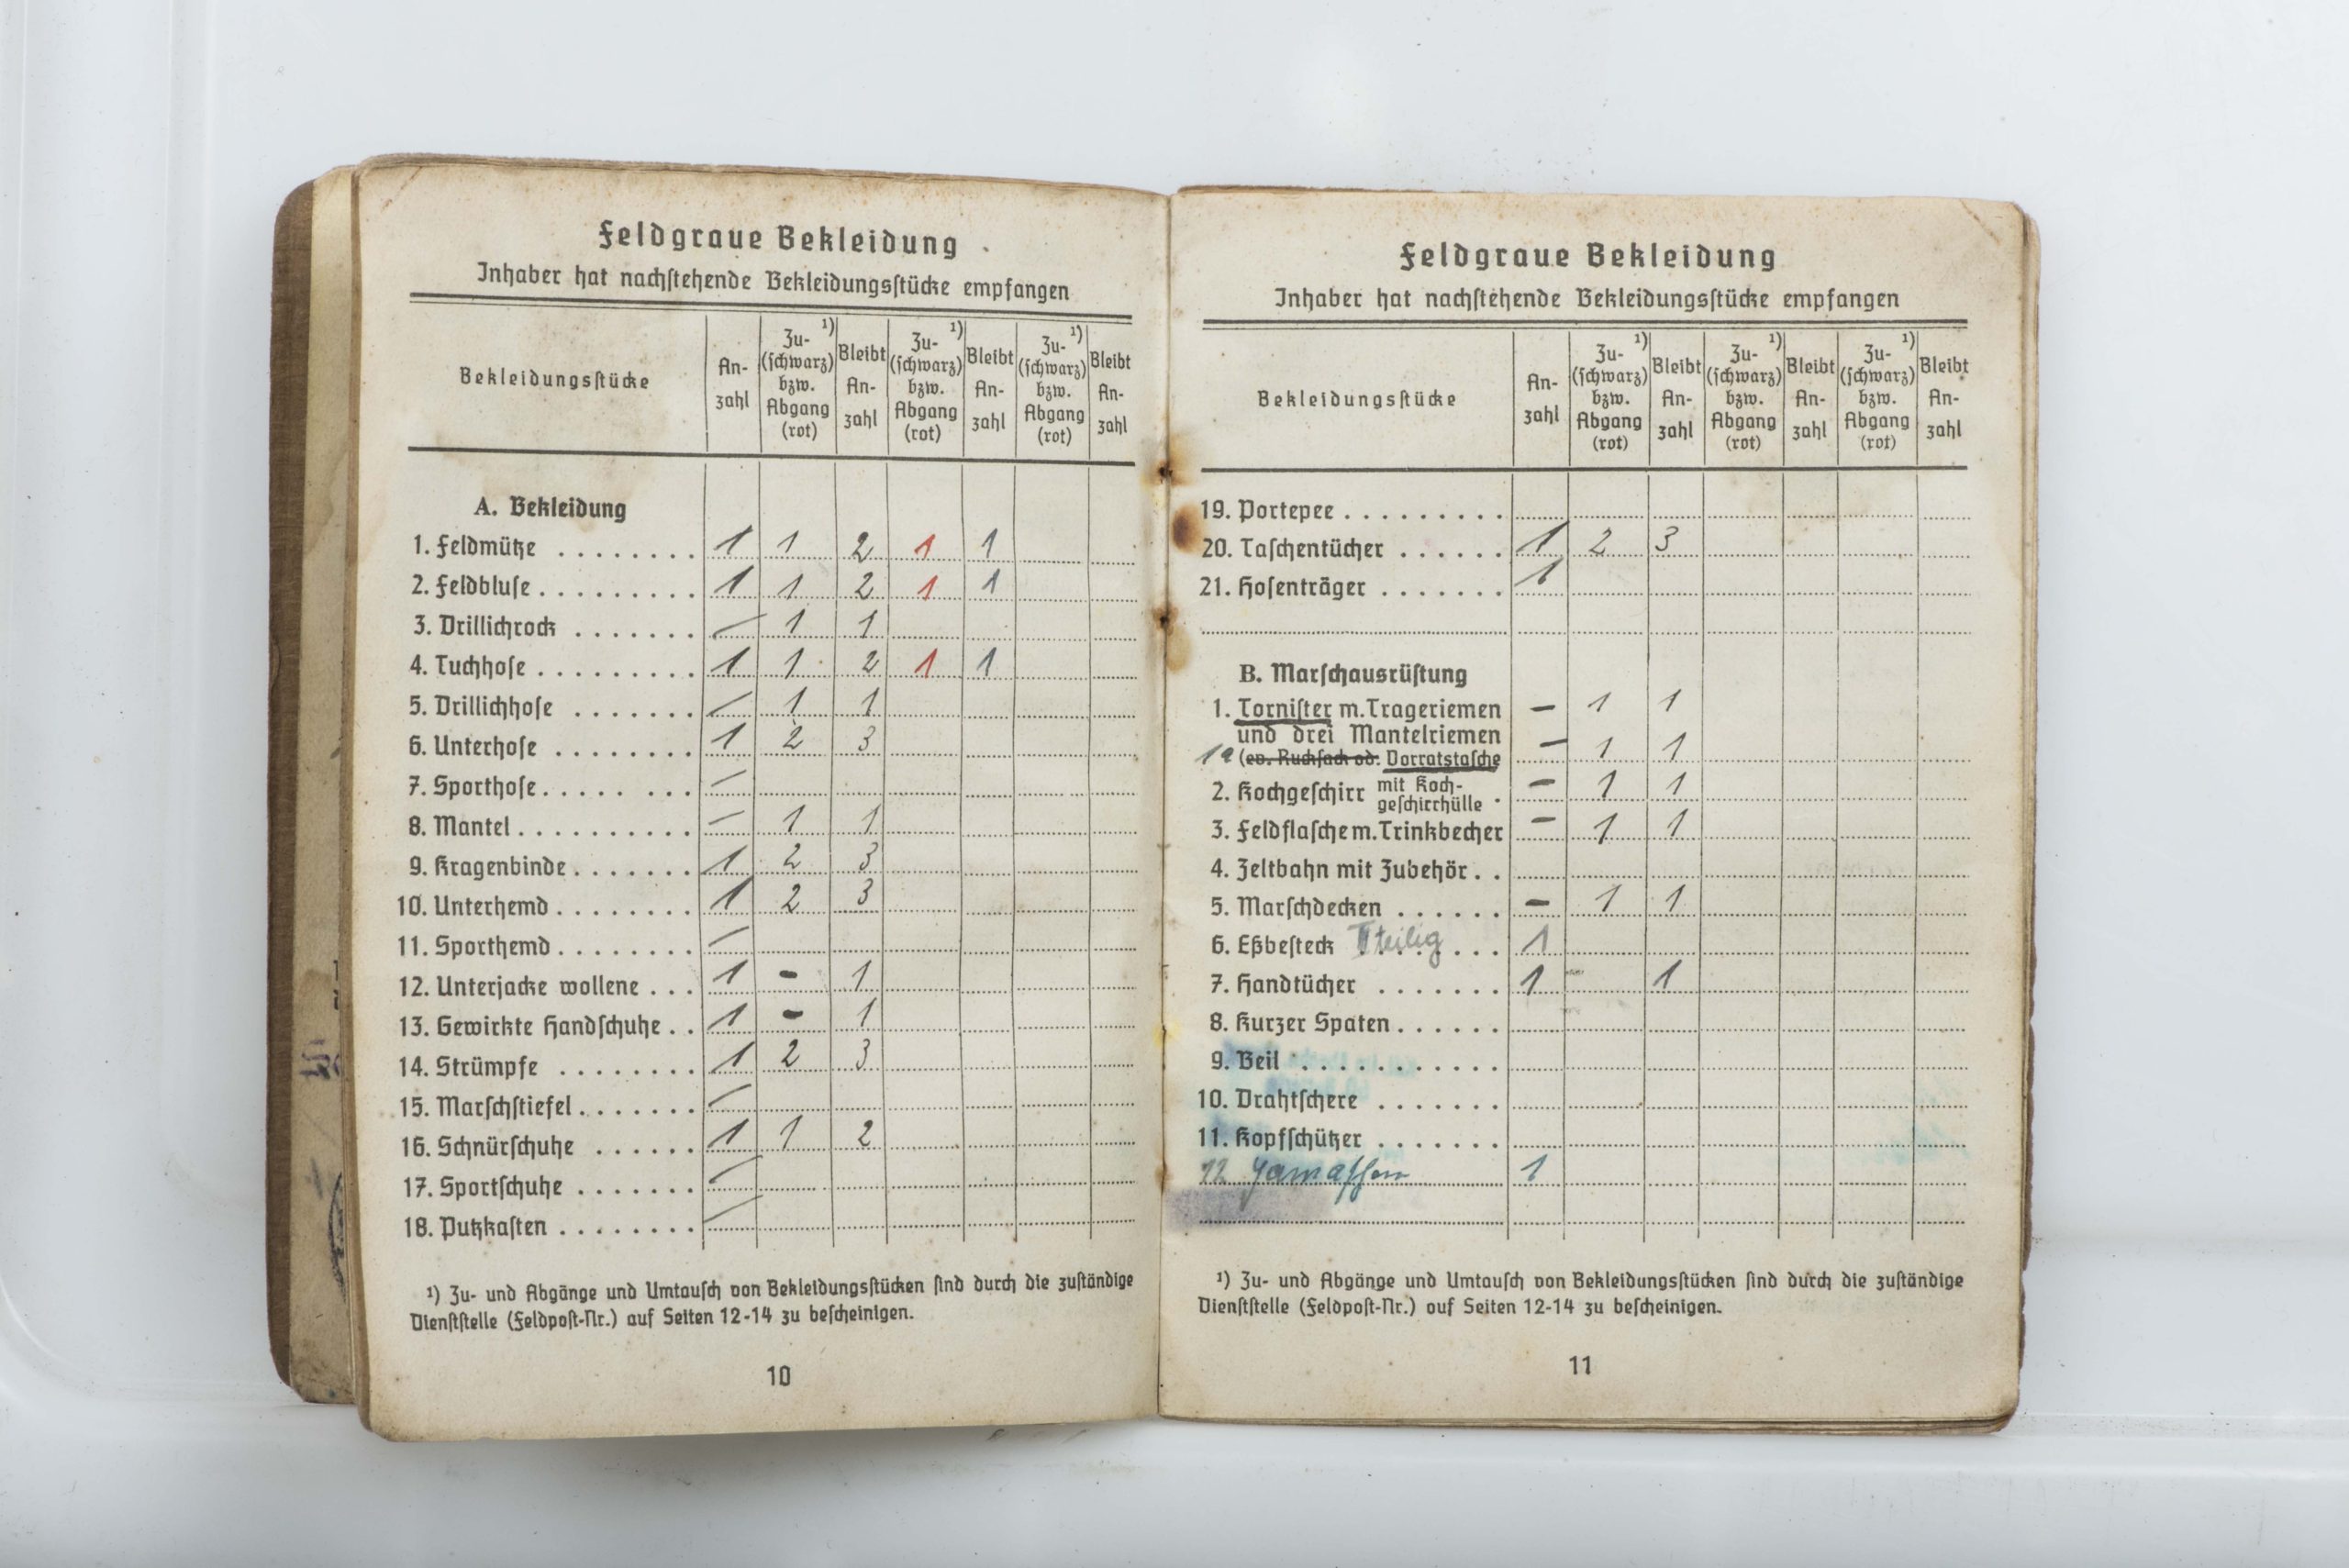 Feldgraue Bekleidung
Inhaber hat nachstehende Bekleidungsstücke empfangen
Bekleidungsstücke | An-zahl | Zu- ¹) (schwarz) bzw. Abgang (rot) | Bleibt An-zahl | Zu- ¹) (schwarz) bzw. Abgang (rot) | Bleibt An-zahl | Zu- ¹) (schwarz) bzw. Abgang (rot) | Bleibt An-zahl
A. Bekleidung
1. Feldmütze . . . . . . . . 1 1 2 1 1
2. Feldbluse . . . . . . . . . 1 1 2 1 1
3. Drillichrock . . . . . . . – 1 1
4. Tuchhose . . . . . . . . . 1 1 2 1 1
5. Drillichhose . . . . . . . – 1 1
6. Unterhose . . . . . . . . 1 2 3
7. Sporthose . . . . . . . . –
8. Mantel . . . . . . . . . . – 1 1
9. Kragenbinde . . . . . . . 1 2 3
10. Unterhemd . . . . . . . . 1 2 3
11. Sporthemd . . . . . . . . –
12. Unterjacke wollene . . . 1 - 1
13. Gewirkte Handschuhe . . 1 - 1
14. Strümpfe . . . . . . . . 1 2 3
15. Marschstiefel . . . . . . . –
16. Schnürschuhe . . . . . . 1 1 2
17. Sportschuhe . . . . . . . –
18. Putzkasten . . . . . . . . –
¹) Zu- und Abgänge und Umtausch von Bekleidungsstücken sind durch die zuständige
Dienststelle (Feldpost-Nr.) auf Seiten 12-14 zu bescheinigen.
10
Feldgraue Bekleidung
Inhaber hat nachstehende Bekleidungsstücke empfangen
Bekleidungsstücke | An-zahl | Zu- ¹) (schwarz) bzw. Abgang (rot) | Bleibt An-zahl | Zu- ¹) (schwarz) bzw. Abgang (rot) | Bleibt An-zahl | Zu- ¹) (schwarz) bzw. Abgang (rot) | Bleibt An-zahl
19. Portepee . . . . . . . . .
20. Taschentücher . . . . . . 1 2 3
21. Hosenträger . . . . . . . 1
B. Marschausrüstung
1. Tornister m. Trageriemen – 1 1
und drei Mantelriemen
1a (ev. Rucksack od. Vorratstasche – 1 1
2. Kochgeschirr mit Koch-geschirrhülle . – 1 1
3. Feldflasche m. Trinkbecher – 1 1
4. Zeltbahn mit Zubehör . .
5. Marschdecken . . . . . . – 1 1
6. Eßbesteck teilig . . . 1
7. Handtücher . . . . . . . 1 1
8. Kurzer Spaten . . . . . .
9. Beil . . . . . . . . . . .
10. Drahtschere . . . . . . .
11. Kopfschützer . . . . . . .
12 Gamaschen 1
¹) Zu- und Abgänge und Umtausch von Bekleidungsstücken sind durch die zuständige
Dienststelle (Feldpost-Nr.) auf Seiten 12-14 zu bescheinigen.
11